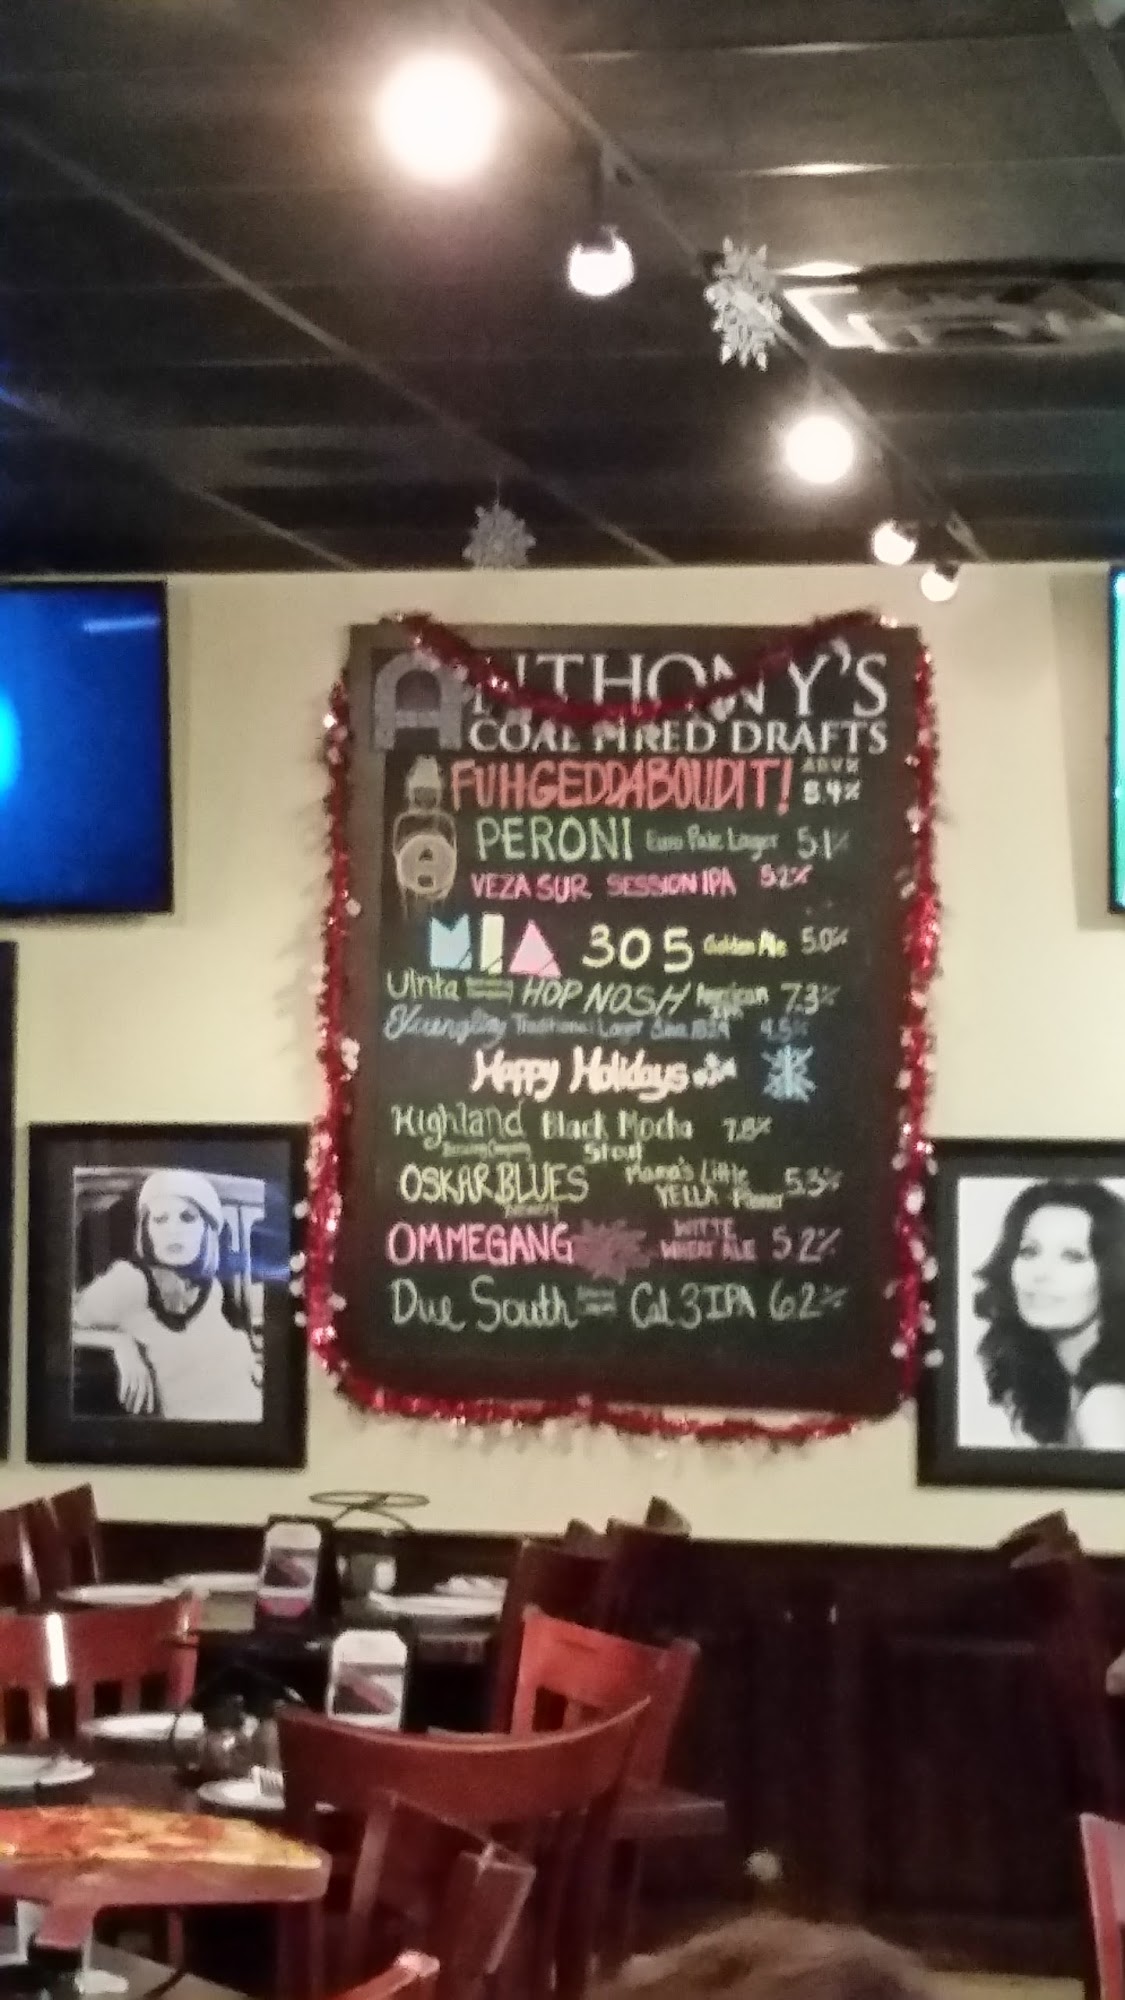 ANTHONY'S
COAL FIRED DRAFTS
FUHGEDDABOUDIT! ABV% 5.4%
PERONI Euro Pale Lager 5.1%
VEZA SUR SESSION IPA 5.2%
MIA 305 Golden Ale 5.0%
Uinta Brewing Company HOP NOSH American IPA 7.3%
Yuengling Traditional Lager Since 1829 4.5%
Happy Holidays
Highland Brewing Company Black Mocha Stout 7.8%
OSKAR BLUES Brewery Mama's Little YELLA Pilsner 5.3%
OMMEGANG WITTE WHEAT ALE 5.2%
Due South Brewing Company Cat 3 IPA 6.2%